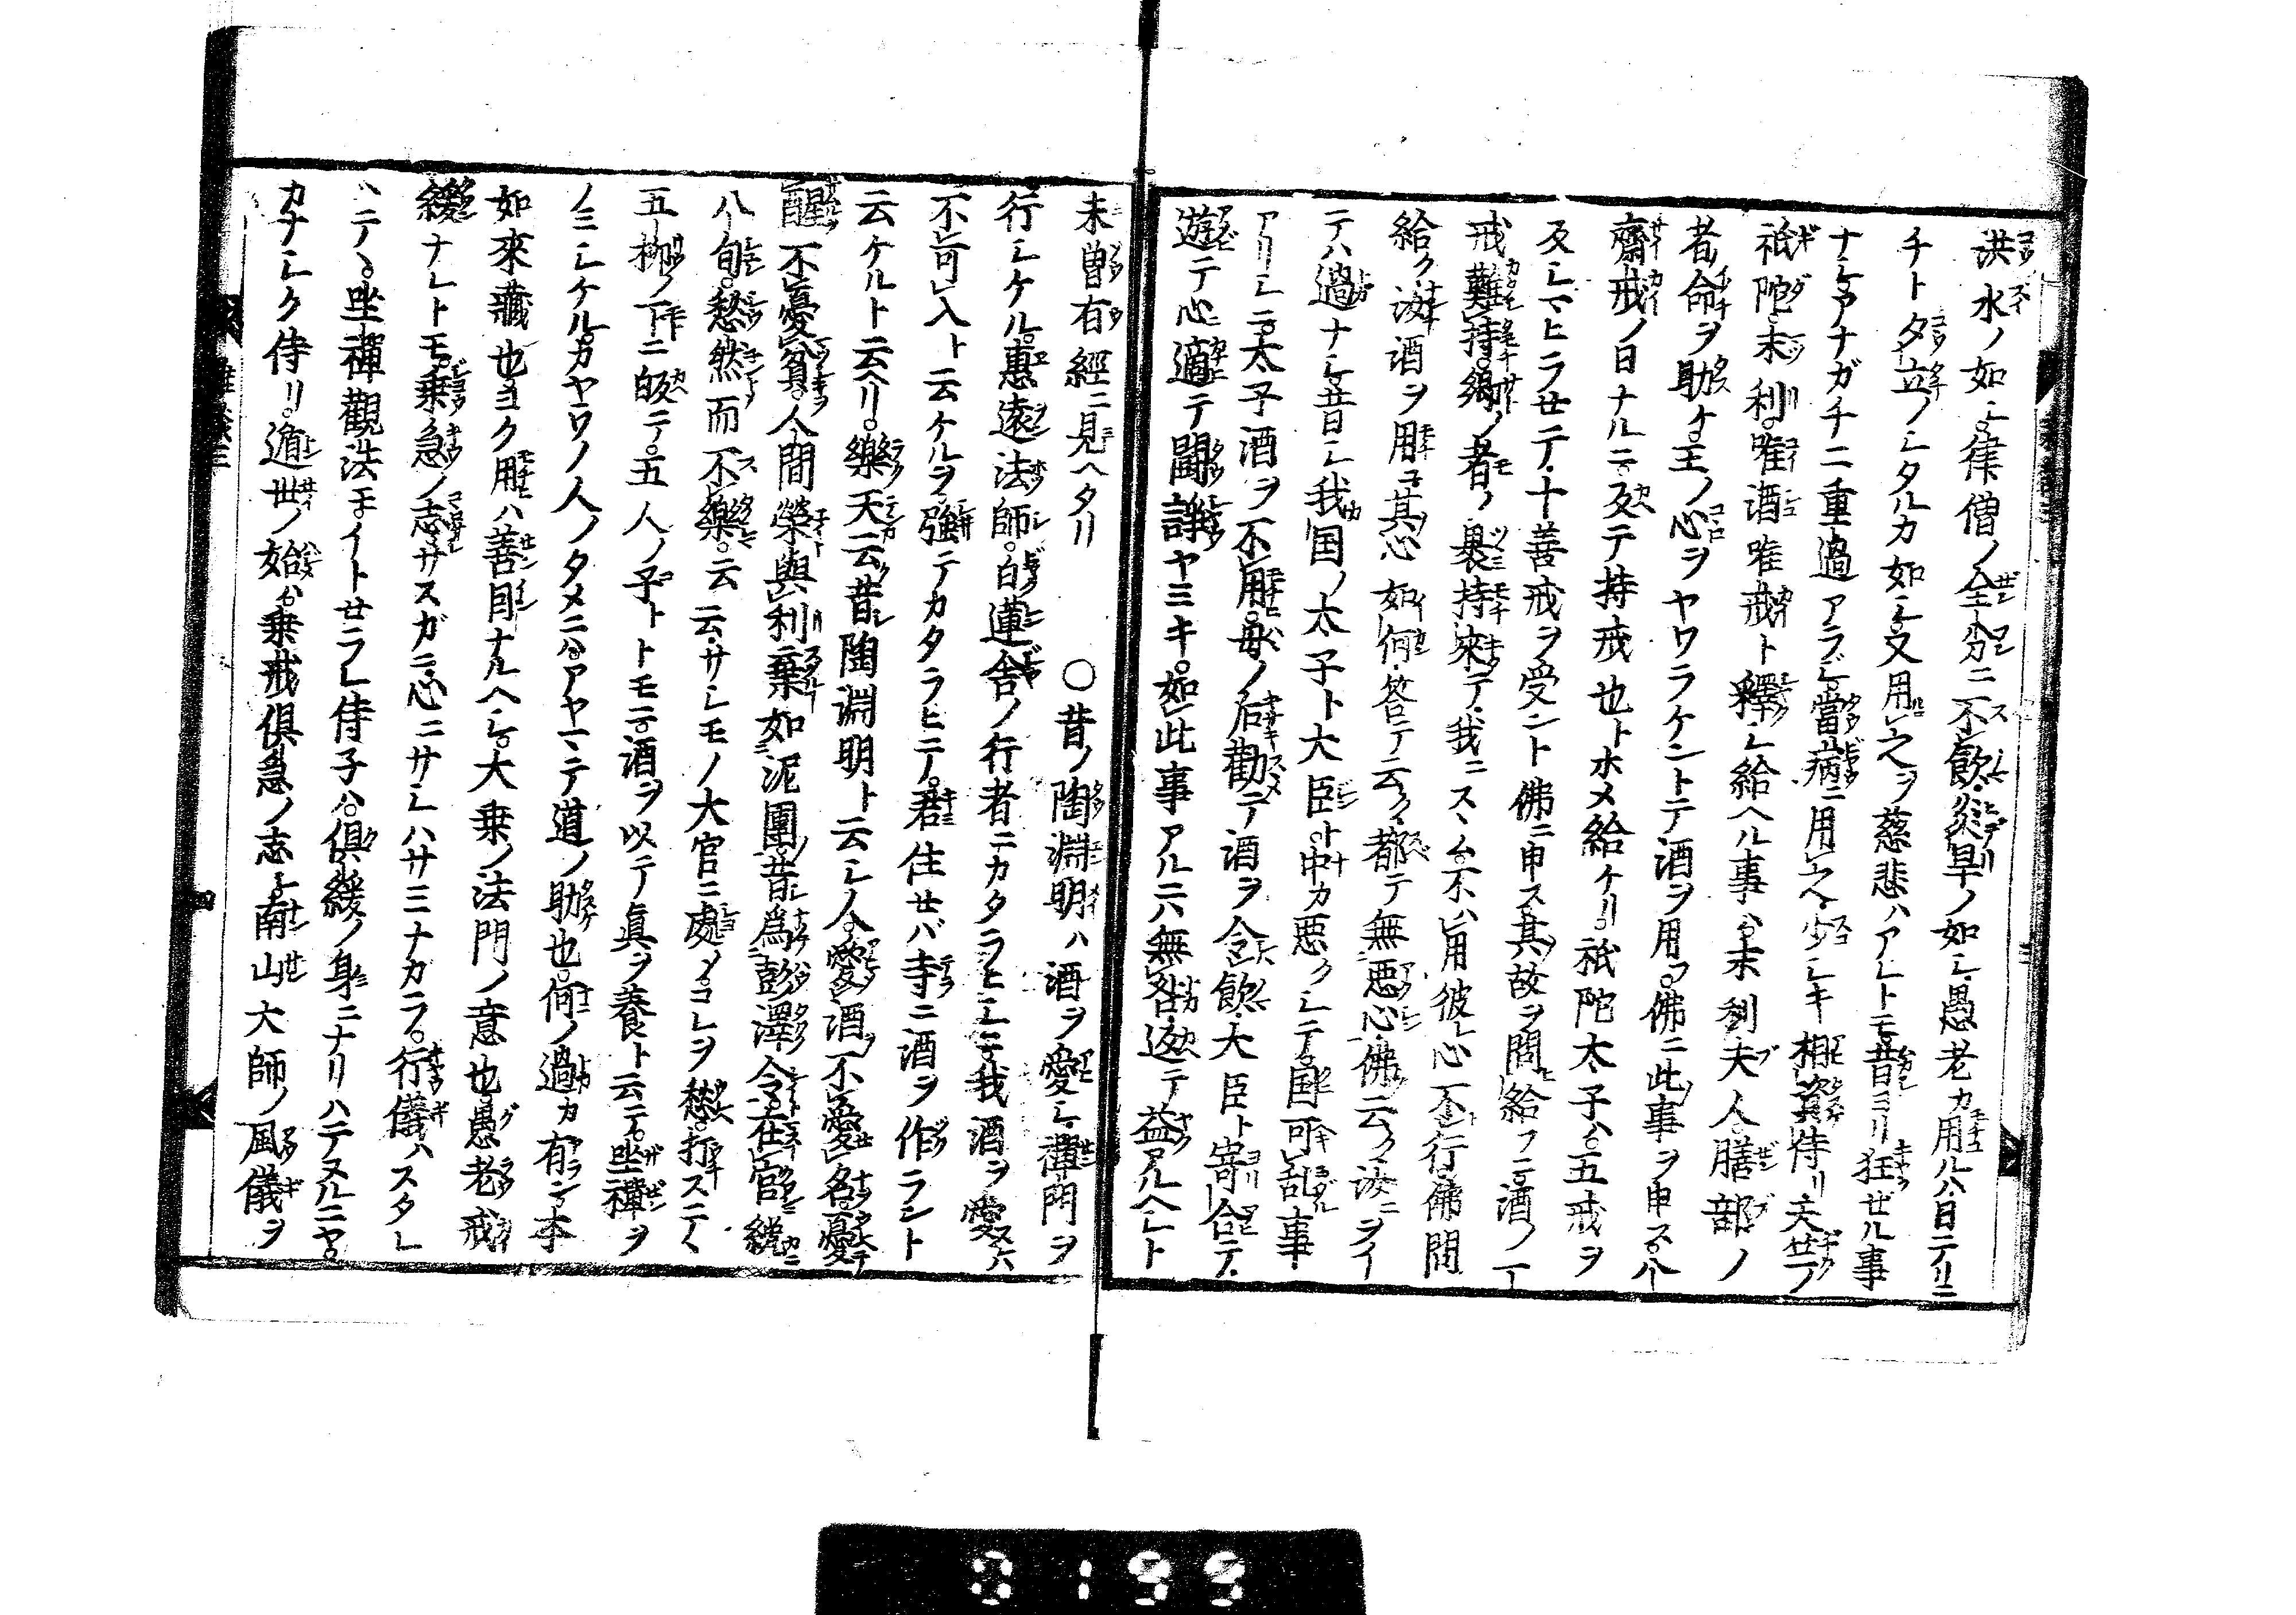 洪水ノ如シ律僧ノ全分ニ不飲炎旱ノ如シ愚老カ用ルハ日テリニ
チト夕立ノシタルカ如シ又用之ヲ慈悲ハアレトモ昔ヨリ狂ゼル事
ナシアナガチニ重過アラジ當病ニ用之少シキ相資侍リ天竺ノ
祇陀末利唯酒唯戒ト釋シ給ヘル事ハ末利夫人膳部ノ
者命ヲ助ケ王ノ心ヲヤワラケントテ酒ヲ用フ佛ニ此事ヲ申ス八
齋戒ノ日ナルニ反テ持戒也トホメ給ケリ祇陀太子ハ五戒ヲ
反シマヒラセテ十善戒ヲ受ント佛ニ申ス其故ヲ問給フニ酒ノ
戒難持獨ノ者ノ裹持來テ我ニスヽム不ハ用彼レ心不行佛問
給ク汝酒ヲ用ヨ其心如何答テ云ク都テ無惡心佛云ク汝ニヲイ
テハ過ナシ昔シ我国ノ太子ト大臣ト中カ悪クシテ国可乱事
アリシニ太子酒ヲ不用母ノ后勸テ酒ヲ令飲大臣ト寄合テ
遊テ心適テ鬪諍ヤミキ如此事アルニハ無咎返テ益アルヘシト
未曽有經ニ見ヘタリ　○昔ノ陶淵明ハ酒ヲ愛シ禪門ヲ
行シケル惠遠法師白蓮舎ノ行者ニカタラヒシニ我酒ヲ愛ス
不可入ト云ケルヲ強テカタラヒテ君住セバ寺ニ酒ヲ作ラント
云ケルト云ヘリ樂天云昔陶淵明ト云シ人愛酒不愛名憂
醒不憂貧人間榮與利棄如泥團昔爲彭澤令在官纔
八旬愁然而不樂云云サレモノ大官ニ處ノコレヲ愁打ステヽ
五柳ノ下ニ皈テ五人ノ子トトモニ酒ヲ以テ眞ヲ養ト云テ坐禪ヲ
ノミシケルカヤウノ人ノタメニハアヤマテ道ノ助也何ノ過カ有ン本
如來藏也ヨク用ヒハ善因ナルヘシ大乗ノ法門ノ意也愚老戒
緩ナレトモ乗急ノ志サスガニ心ニサシハサミナカラ行儀ハスタレ
ハテヽ坐禪觀法モイトセラレ侍子ハ倶緩ノ身ニナリハテヌルニヤ
カナシク侍リ遁世ノ始ハ乗戒倶急ノ志シ南山大師ノ風儀ヲ